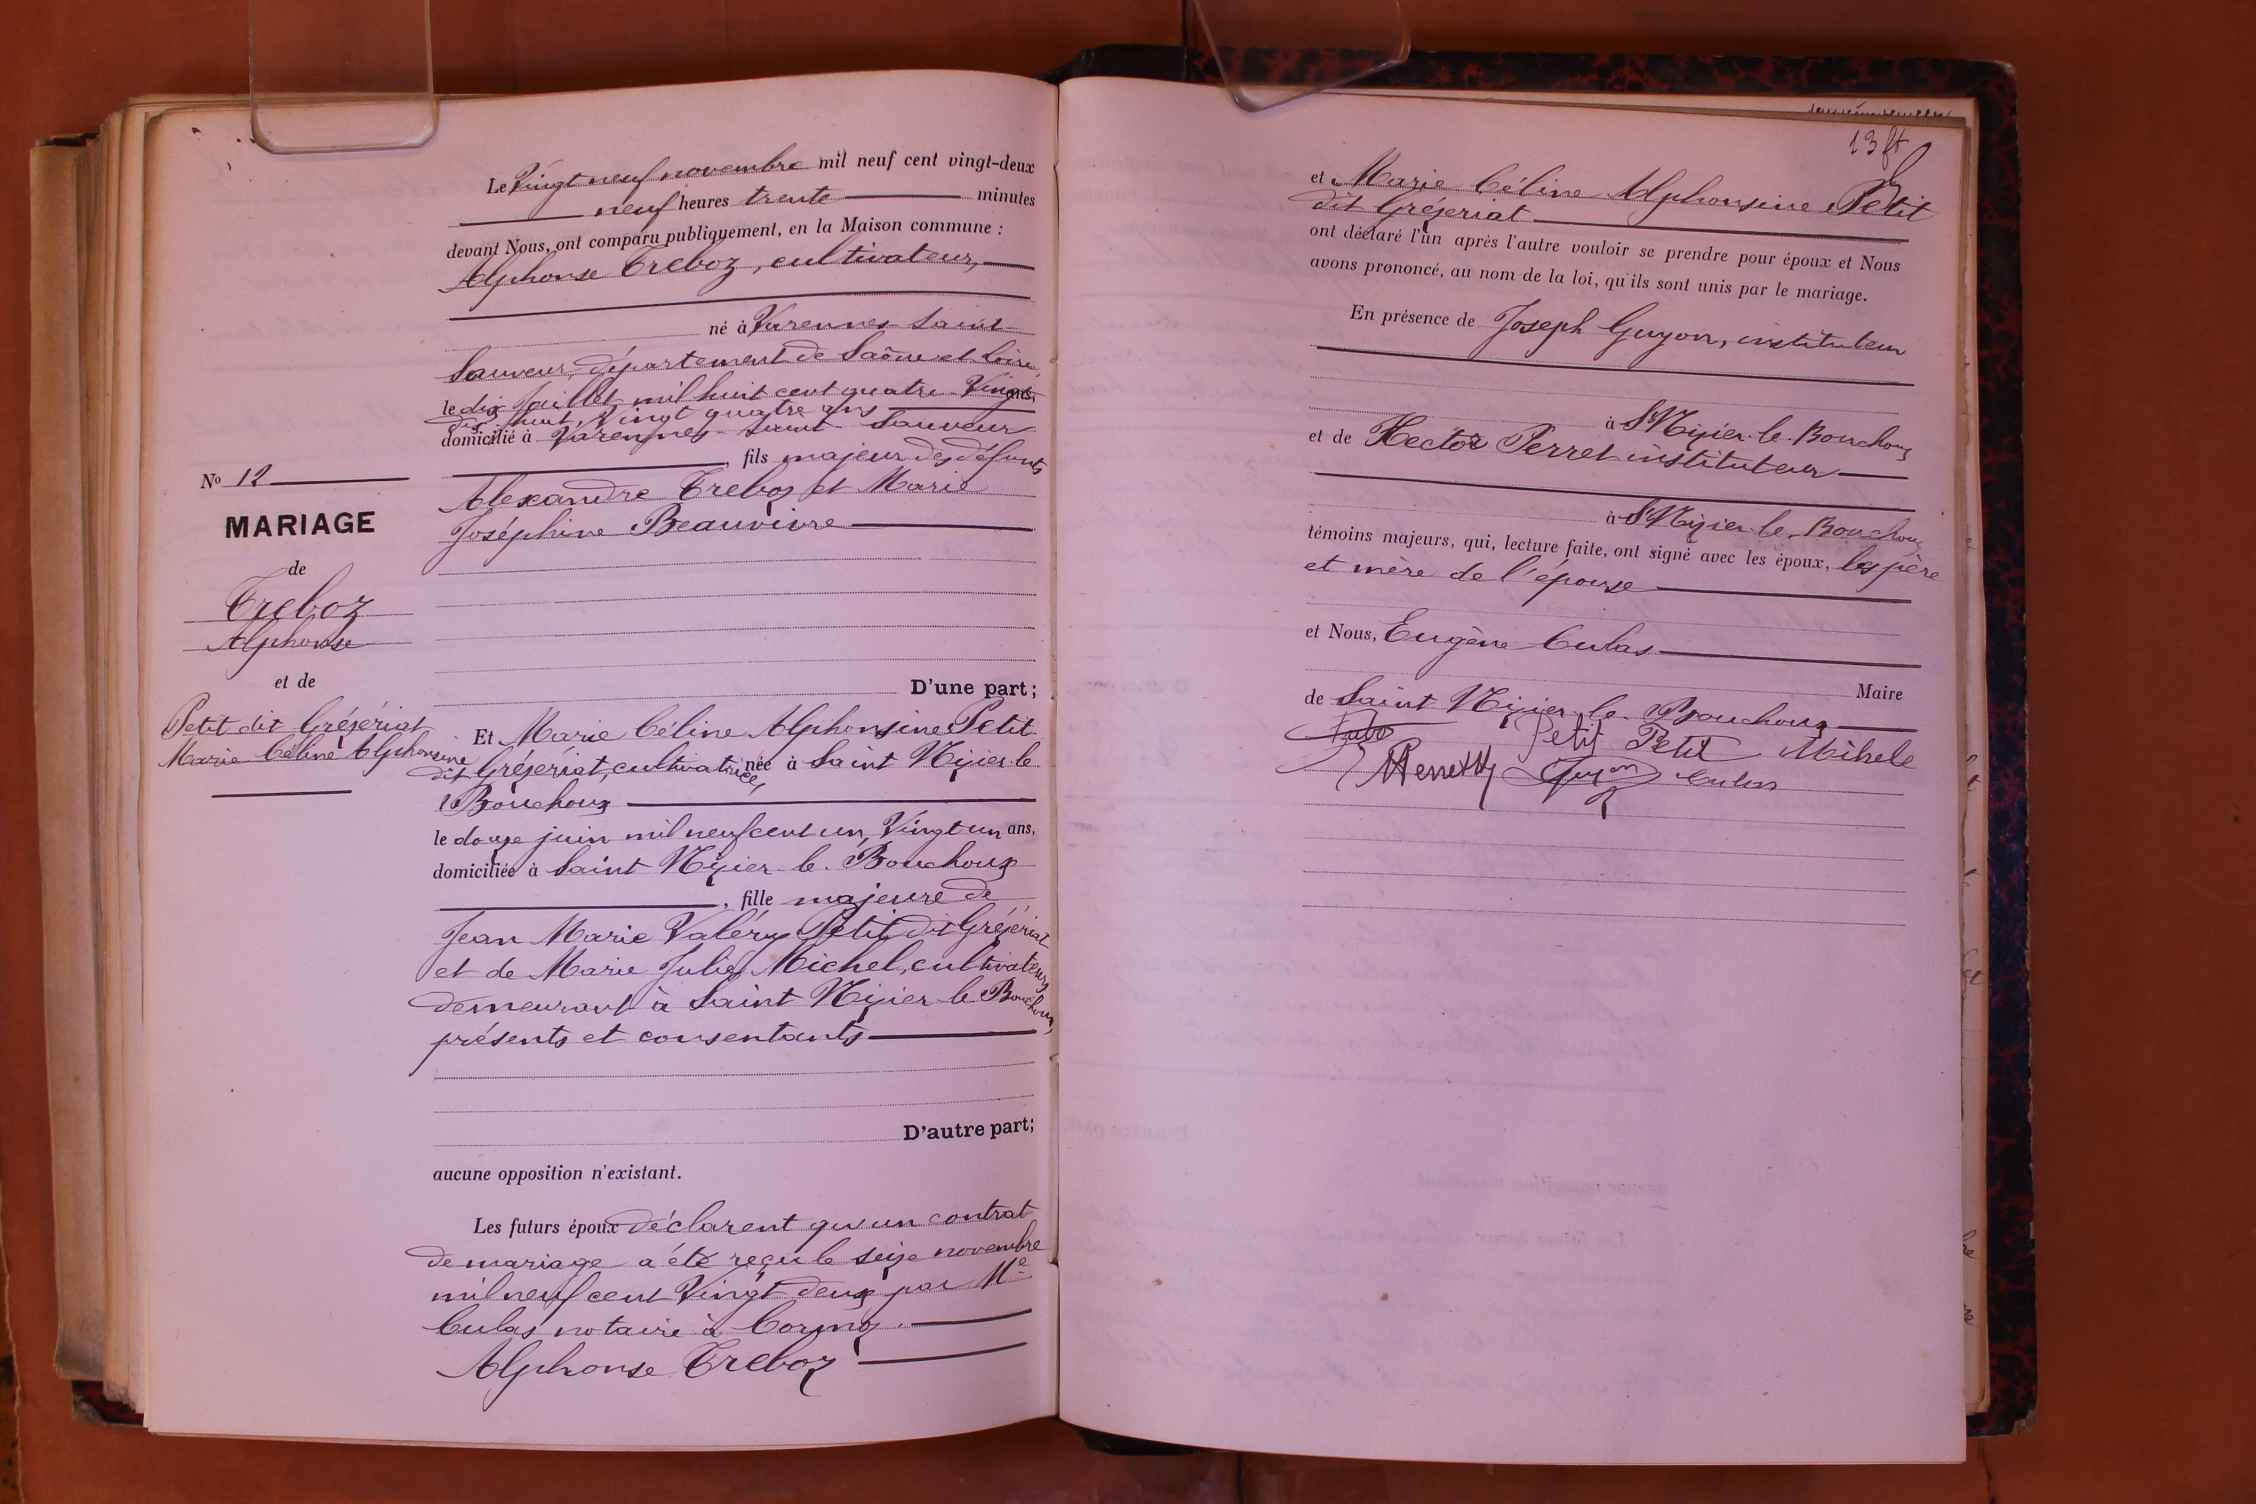 Le Vingt neuf novembre mil neuf cent vingt-deux
neuf heures trente minutes
devant Nous, ont comparu publiquement, en la Maison commune :
Alphonse Treboz, cultivateur,
né à Varennes Saint
Sauveur, département de Saône et Loire,
le dix Juillet mil huit cent quatre-Vingt ans,
dix huit, Vingt quatre ans
domicilié à Varennes Saint Sauveur
, fils majeur des défunts
Alexandre Treboz et Marie
Joséphine Beauvivre
D'une part ;
No 12
MARIAGE
de
Treboz
Alphonse
et de
Petit dit Gréjériat
Marie Céline Alphonsine
Et Marie Céline Alphonsine Petit
dit Gréjeriat, cultivatrice, née à Saint Nizier le
Bouchoux
le douze juin mil neuf cent un, Vingt un ans,
domiciliée à Saint Nizier le Bouchoux
, fille majeure de
Jean Marie Valéry Petit dit Gréjériat
et de Marie Julie Michel, cultivateurs
demeurant à Saint Nizier le Bouchoux,
présents et consentants
D'autre part ;
aucune opposition n'existant.
Les futurs époux déclarent qu'un contrat
de mariage a été reçu le seize novembre
mil neuf cent Vingt deux par Me
Culas notaire à Cormoz.
Alphonse Treboz
13 ft
et Marie Céline Alphonsine Petit
dit Gréjeriat
ont déclaré l'un après l'autre vouloir se prendre pour époux et Nous
avons prononcé, au nom de la loi, qu'ils sont unis par le mariage.
En présence de Joseph Guyon, instituteur
à St Nizier le Bouchoux
et de Hector Perret instituteur
à St Nizier le Bouchoux
témoins majeurs, qui, lecture faite, ont signé avec les époux, les père
et mère de l'épouse
et Nous, Eugène Culas
Maire
de Saint Nizier le Bouchoux
Petit Petit Michele
Guyon Culas